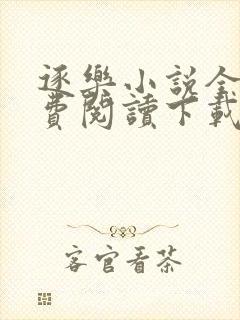 逐樂小說全
費閱讀下載
客官看茶